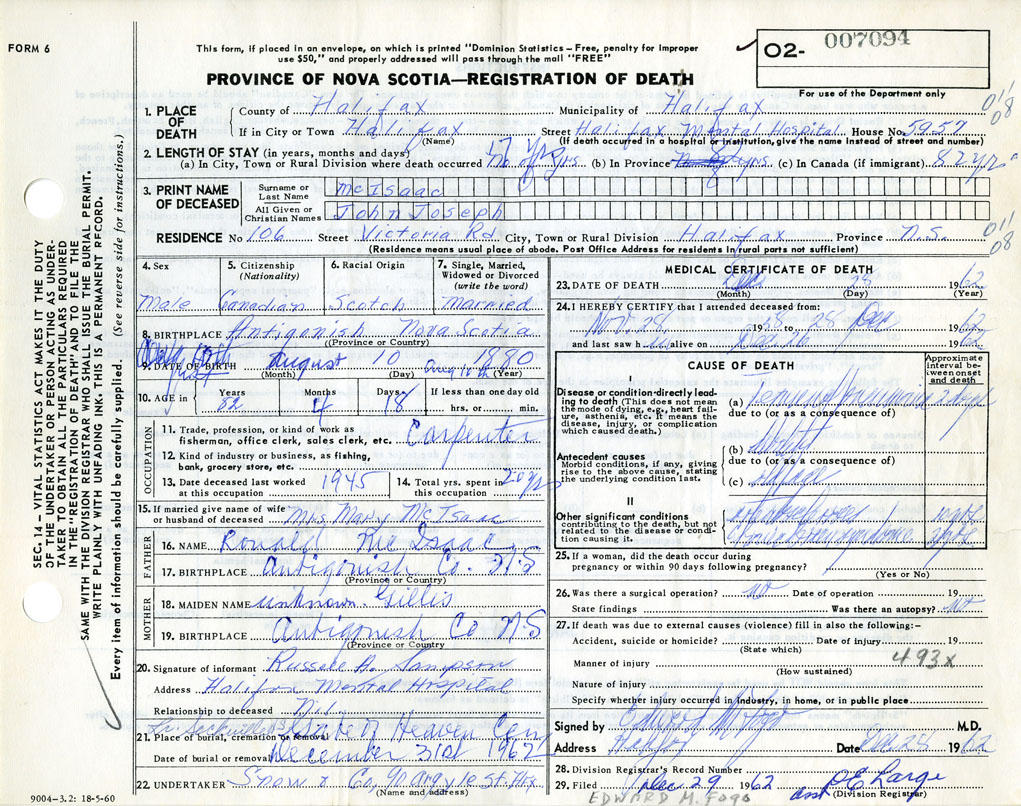 FORM 6
This form, if placed in an envelope, on which is printed "Dominion Statistics – Free, penalty for improper
use $50," and properly addressed will pass through the mail "FREE"
PROVINCE OF NOVA SCOTIA—REGISTRATION OF DEATH
✓ 02- 007094
For use of the Department only
1. PLACE OF DEATH
County of Halifax Municipality of Halifax 01/08
If in City or Town Halifax Street Halifax Mental Hospital House No. 5957
(Name) (If death occurred in a hospital or institution, give the name instead of street and number)
2. LENGTH OF STAY (in years, months and days)
(a) In City, Town or Rural Division where death occurred 17 yrs. (b) In Province yrs. (c) In Canada (if immigrant) 82 yrs
3. PRINT NAME OF DECEASED
Surname or Last Name McIsaac
All Given or Christian Names John Joseph
RESIDENCE No. 106 Street Victoria Rd City, Town or Rural Division Halifax Province N.S. 01/08
(Residence means usual place of abode. Post Office Address for residents in rural parts not sufficient)
4. Sex Male
5. Citizenship (Nationality) Canadian
6. Racial Origin Scotch
7. Single, Married, Widowed or Divorced (write the word) Married
8. BIRTHPLACE Antigonish Nova Scotia
(Province or Country)
9. DATE OF BIRTH August 10 1880
(Month) (Day) (Year)
10. AGE in Years 82 Months 4 Days 18 If less than one day old hrs. or min.
OCCUPATION
11. Trade, profession, or kind of work as
fisherman, office clerk, sales clerk, etc. Carpenter
12. Kind of industry or business, as fishing,
bank, grocery store, etc.
13. Date deceased last worked at this occupation 1945
14. Total yrs. spent in this occupation 20 yrs
15. If married give name of wife
or husband of deceased Mrs Mary McIsaac
FATHER
16. NAME Ronald Mc Isaac
17. BIRTHPLACE Antigonish Co. N.S
(Province or Country)
MOTHER
18. MAIDEN NAME unknown Gillis
19. BIRTHPLACE Antigonish Co N.S
(Province or Country)
20. Signature of informant Russell A. Sampson
Address Halifax Mental Hospital
Relationship to deceased Nil
21. Place of burial, cremation or removal Gate of Heaven Cem
Date of burial or removal December 31st 1962
22. UNDERTAKER Snow & Co, 90 Argyle St. Hfx
(Name and address)
9004-3.2: 18-5-60
MEDICAL CERTIFICATE OF DEATH
23. DATE OF DEATH Dec 28 1962
(Month) (Day) (Year)
24. I HEREBY CERTIFY that I attended deceased from:
Nov. 28 19 to 28 Dec 1962
and last saw h alive on 1962
CAUSE OF DEATH
Approximate interval between onset and death
I
Disease or condition directly leading to death (This does not mean the mode of dying, e.g., heart failure, asthenia, etc. It means the disease, injury, or complication which caused death.)
(a) Pneumonia 2 days
due to (or as a consequence of)
Antecedent causes
Morbid conditions, if any, giving rise to the above cause, stating the underlying condition last.
(b)
due to (or as a consequence of)
(c)
II
Other significant conditions
contributing to the death, but not related to the disease or condition causing it.
25. If a woman, did the death occur during
pregnancy or within 90 days following pregnancy?
(Yes or No)
26. Was there a surgical operation? no Date of operation 19
State findings Was there an autopsy? no
27. If death was due to external causes (violence) fill in also the following:-
Accident, suicide or homicide? Date of injury 19
(State which)
Manner of injury 493x
(How sustained)
Nature of injury
Specify whether injury occurred in industry, in home, or in public place
Signed by Edward M Fogo M.D.
Address Halifax Date Dec 28 1962
28. Division Registrar's Record Number
29. Filed Dec 29 1962
(Division Registrar)
EDWARD M. FOGO
SEC. 14 – VITAL STATISTICS ACT MAKES IT THE DUTY
OF THE UNDERTAKER OR PERSON ACTING AS UNDER-
TAKER TO OBTAIN ALL THE PARTICULARS REQUIRED
IN THE "REGISTRATION OF DEATH" AND TO FILE THE
SAME WITH THE DIVISION REGISTRAR WHO SHALL ISSUE THE BURIAL PERMIT.
WRITE PLAINLY WITH UNFADING INK. THIS IS A PERMANENT RECORD.
Every item of information should be carefully supplied. (See reverse side for instructions.)